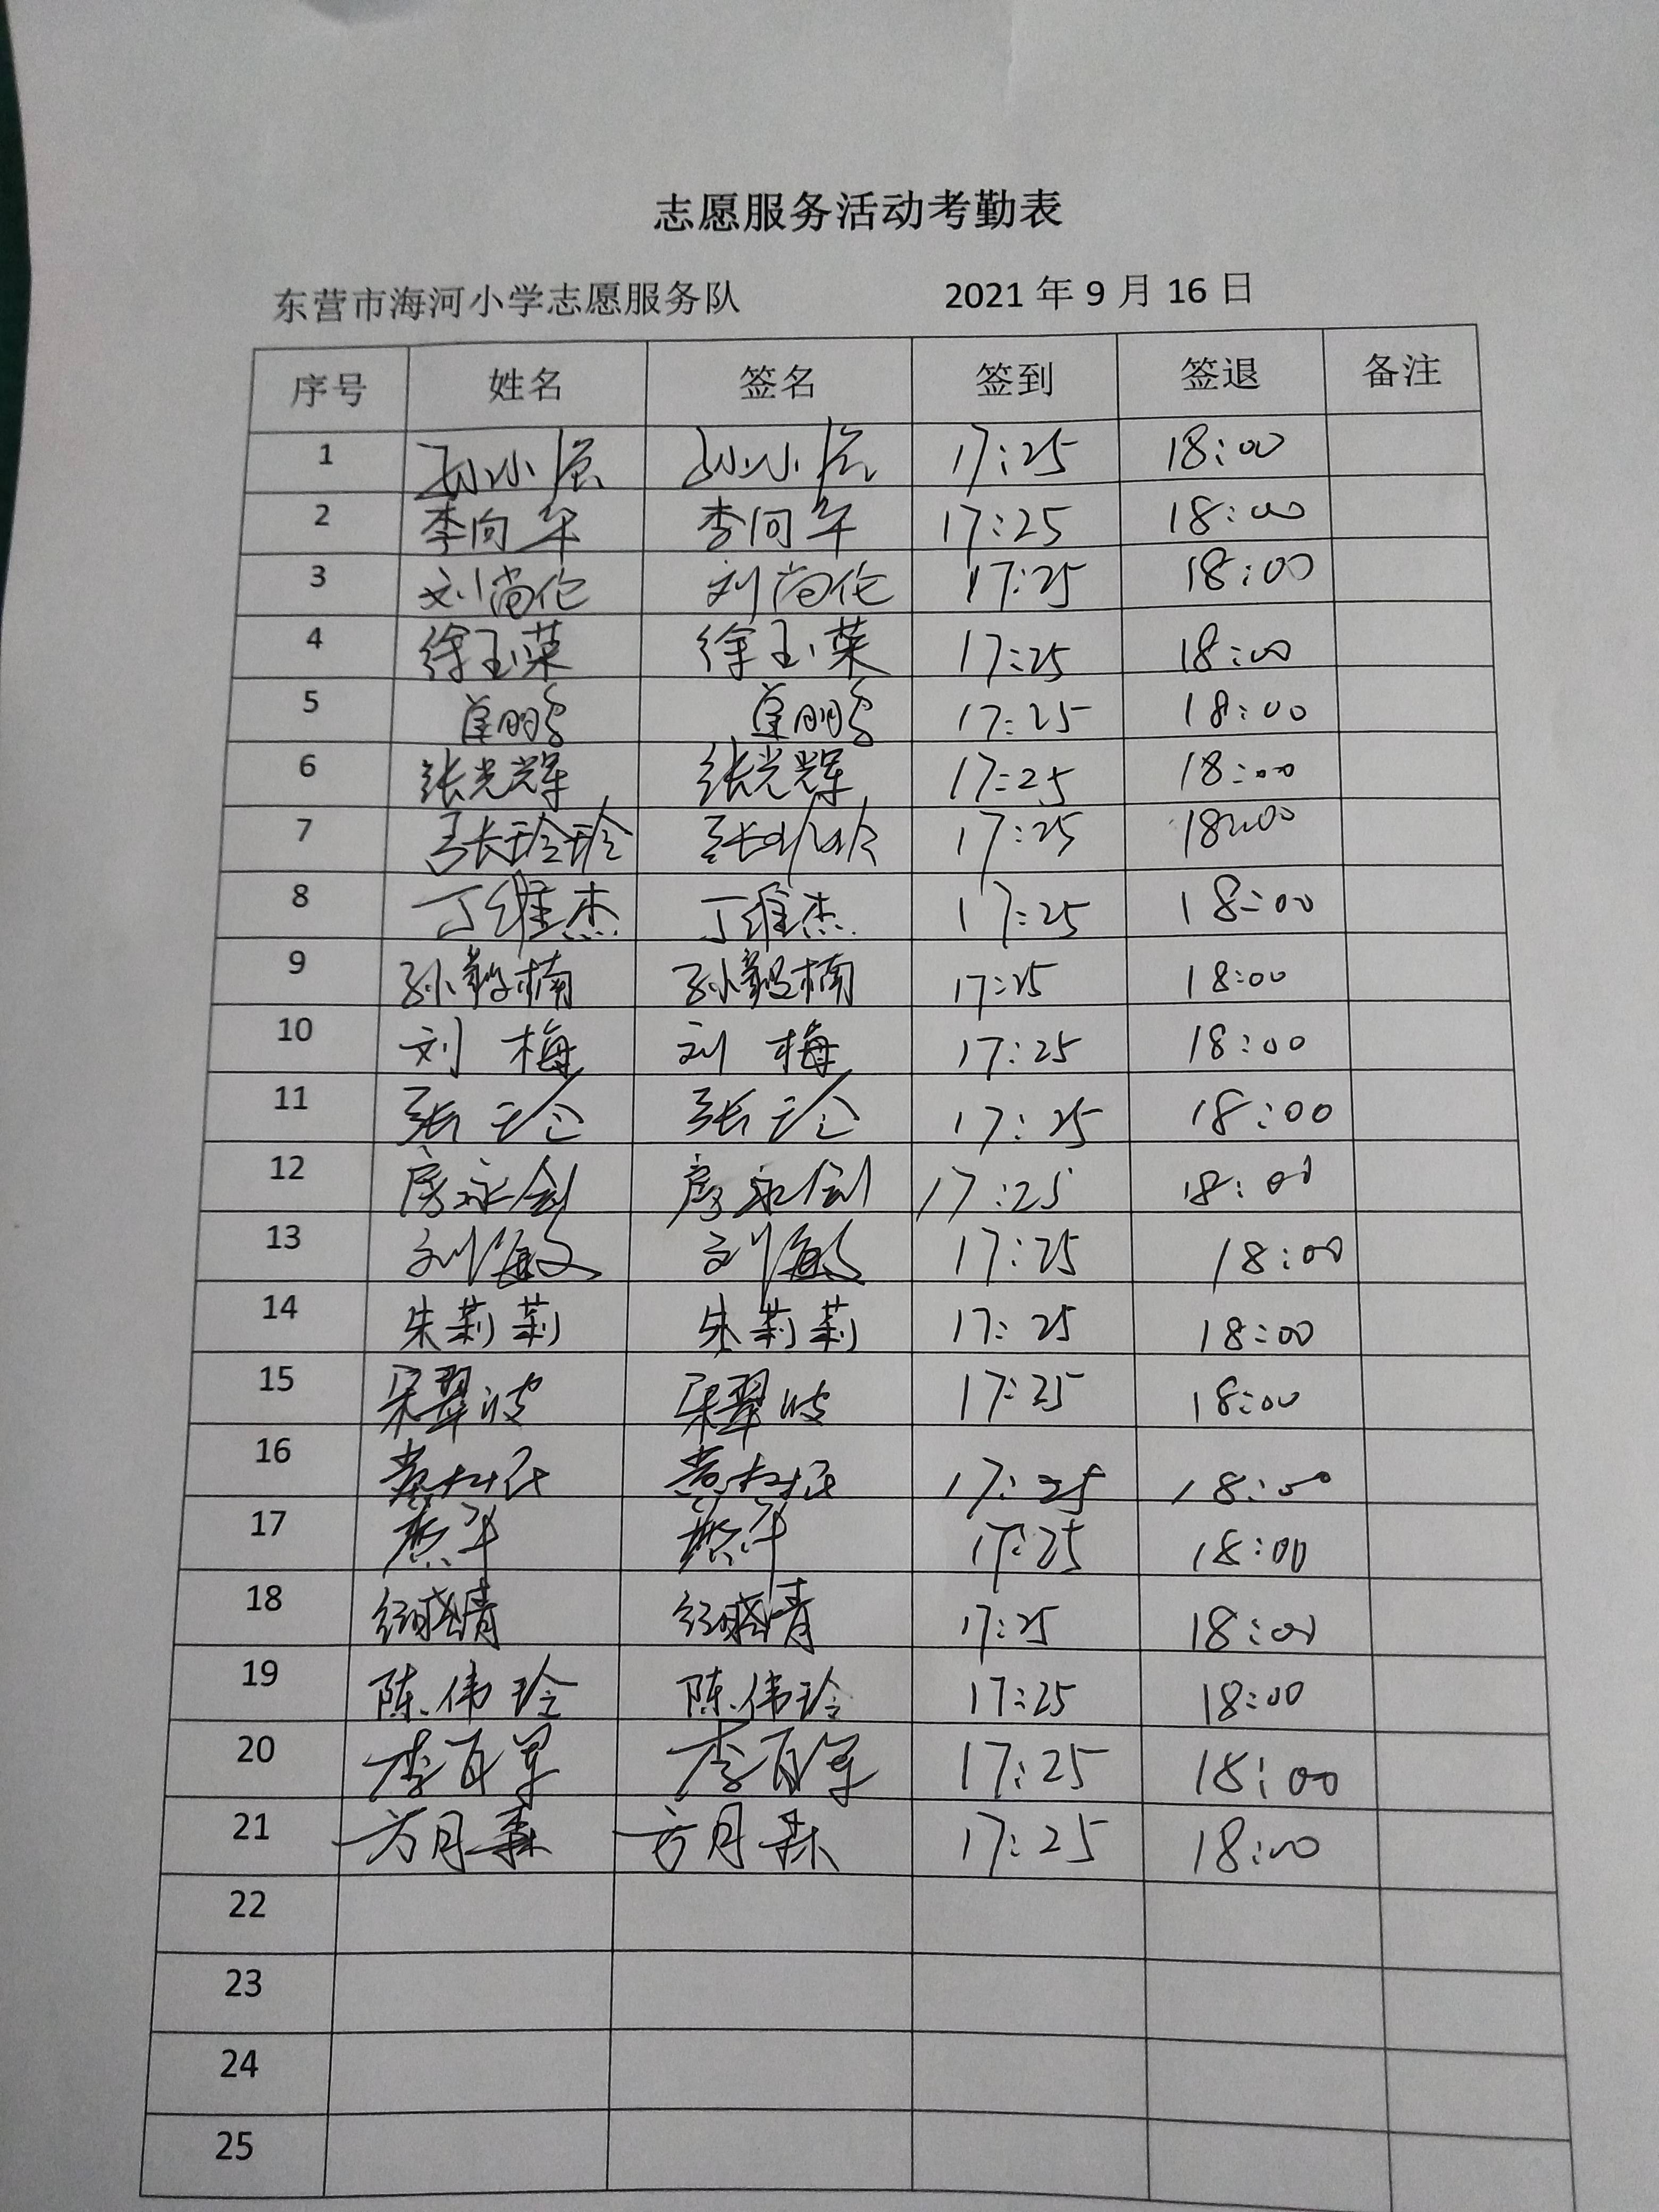 志愿服务活动考勤表
东营市海河小学志愿服务队 2021 年 9 月 16 日
序号 姓名 签名 签到 签退 备注
1 孙小 孙小 17:25 18:00
2 李向军 李向军 17:25 18:00
3 刘尚伦 刘尚伦 17:25 18:00
4 徐玉荣 徐玉荣 17:25 18:00
5 鹏 鹏 17:25 18:00
6 张光辉 张光辉 17:25 18:00
7 张玲玲 张玲玲 17:25 18:00
8 丁维杰 丁维杰 17:25 18:00
9 孙毅楠 孙毅楠 17:25 18:00
10 刘梅 刘梅 17:25 18:00
11 张玲 张玲 17:25 18:00
12 房永剑 房永剑 17:25 18:00
13 刘海文 刘 17:25 18:00
14 朱莉莉 朱莉莉 17:25 18:00
15 宋翠波 宋翠波 17:25 18:00
16 17:25 18:00
17 燕军 燕军 17:25 18:00
18 17:25 18:00
19 陈伟玲 陈伟玲 17:25 18:00
20 李百军 李百军 17:25 18:00
21 方月森 方月森 17:25 18:00
22
23
24
25